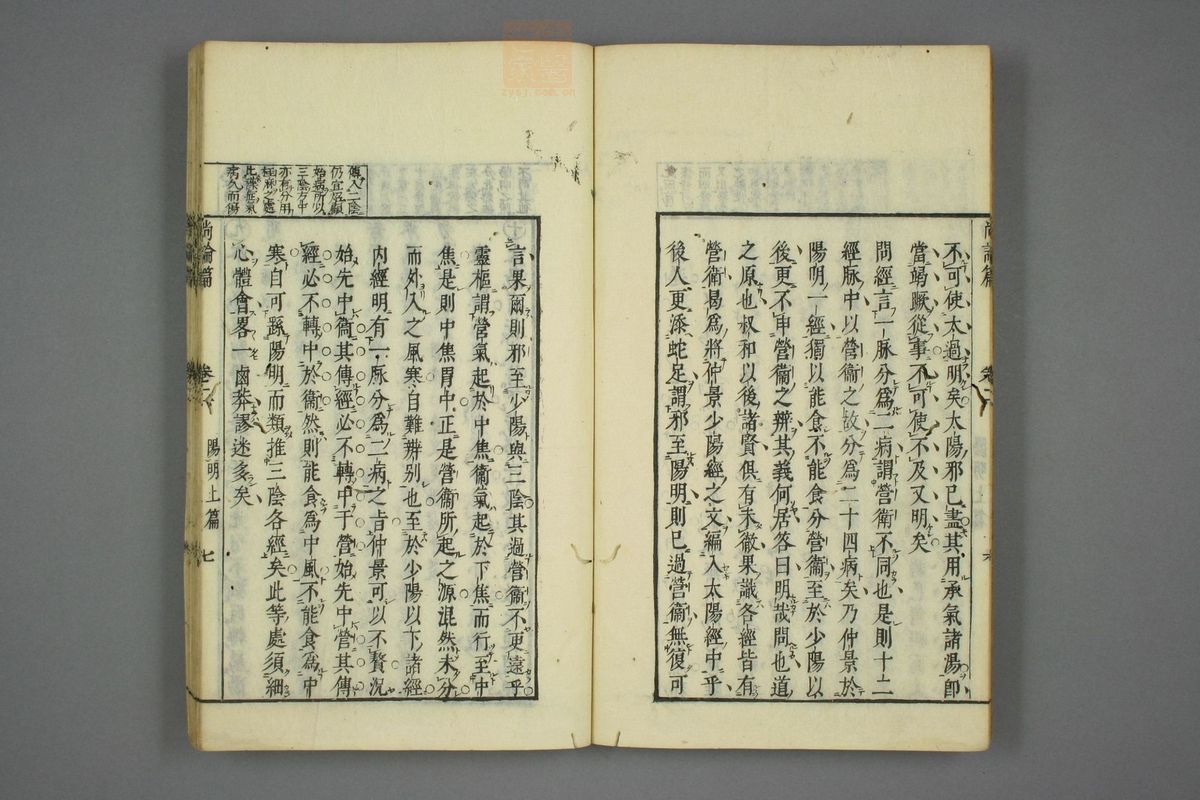 不可使太過明矣太陽邪已盡其用承氣諸湯卽
當竭蹶從事不可使不及又明矣
問經言一脉分爲二病謂營衛不同也是則十二
經脉中以營衛之故分爲二十四病矣乃仲景於
陽明一經獨以能食不能食分營衛至於少陽以
後更不申營衛之辨其義何居答曰明哉問也道
之原也叔和以後諸賢俱有未徹果識各經皆有
營衛曷爲將仲景少陽經之文編入太陽經中乎
後人更添蛇足謂邪至陽明則已過營衛無復可
言果爾則邪至少陽與三陰其過營衛不更遠乎
靈樞謂營氣起於中焦衛氣起於下焦而行至中
焦是則中焦胃中正是營衛所起之源混然未分
而外入之風寒自難辨别也至於少陽以下諸經
内經明有一脉分爲二病之旨仲景可以不贅況
始先中衛其傳經必不轉中于營始先中營其傳
經必不轉中於衛然則能食爲中風不能食爲中
寒自可繇陽明而類推三陰各經矣此等處須細
心體會畧一鹵莽謬迷多矣
傳入二陰
仍宜照顧
始病所以
三陰方中
亦有分用
病久而傷
尚論篇
陽明上篇
七
zysj.com.cn